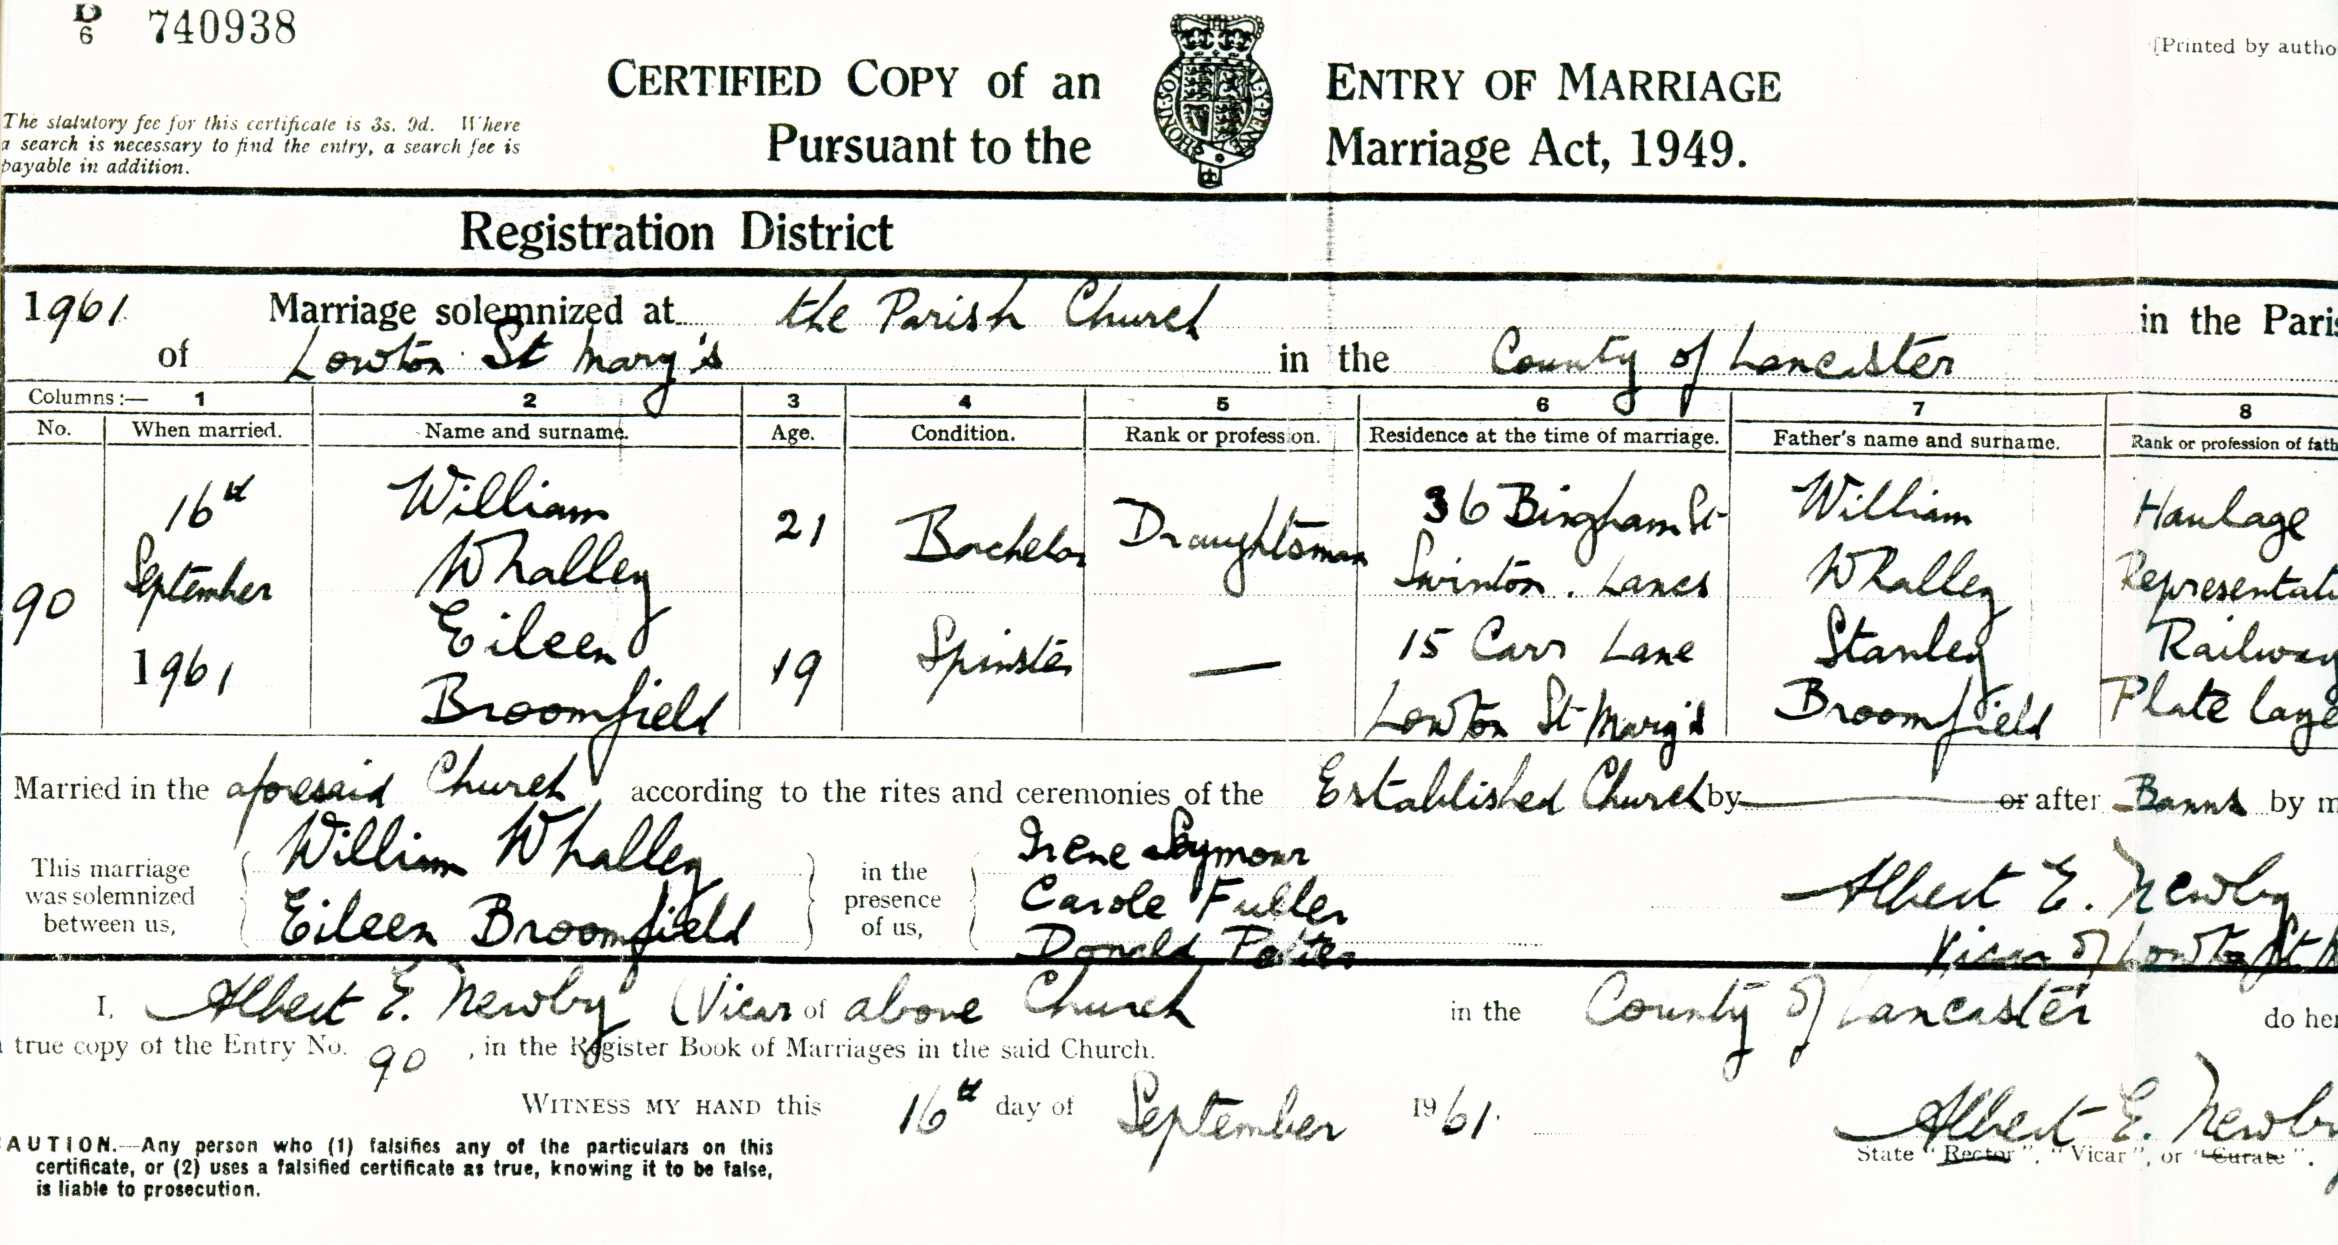 D
6 740938
[Printed by autho
CERTIFIED COPY of an ENTRY OF MARRIAGE
Pursuant to the Marriage Act, 1949.
HONI·SOIT AL·Y·PENSE
The statutory fee for this certificate is 3s. 9d. Where
a search is necessary to find the entry, a search fee is
payable in addition.
Registration District
1961 Marriage solemnized at the Parish Church in the Paris
of Lowton St Mary's in the County of Lancaster
Columns:— 1 2 3 4 5 6 7 8
No. When married. Name and surname. Age. Condition. Rank or profession. Residence at the time of marriage. Father's name and surname. Rank or profession of fath
16th William 21 Bachelor Draughtsman 36 Bingham St William Haulage
September Whalley Swinton. Lancs Whalley Representati
90 Eileen 19 Spinster — 15 Carr Lane Stanley Railway
1961 Broomfield Lowton St Mary's Broomfield Plate laye
Married in the aforesaid Church according to the rites and ceremonies of the Established Church by — or after Banns by m
This marriage was solemnized between us, William Whalley
Eileen Broomfield
in the presence of us, Irene Seymour
Carole Fuller
Donald
Albert E. Newby
Vicar of Lowton St M
I, Albert E. Newby (Vicar of above Church in the County of Lancaster do her
a true copy of the Entry No. 90, in the Register Book of Marriages in the said Church.
WITNESS MY HAND this 16th day of September 1961.
Albert E. Newby
State "Rector", "Vicar", or "Curate".
CAUTION.—Any person who (1) falsifies any of the particulars on this
certificate, or (2) uses a falsified certificate as true, knowing it to be false,
is liable to prosecution.